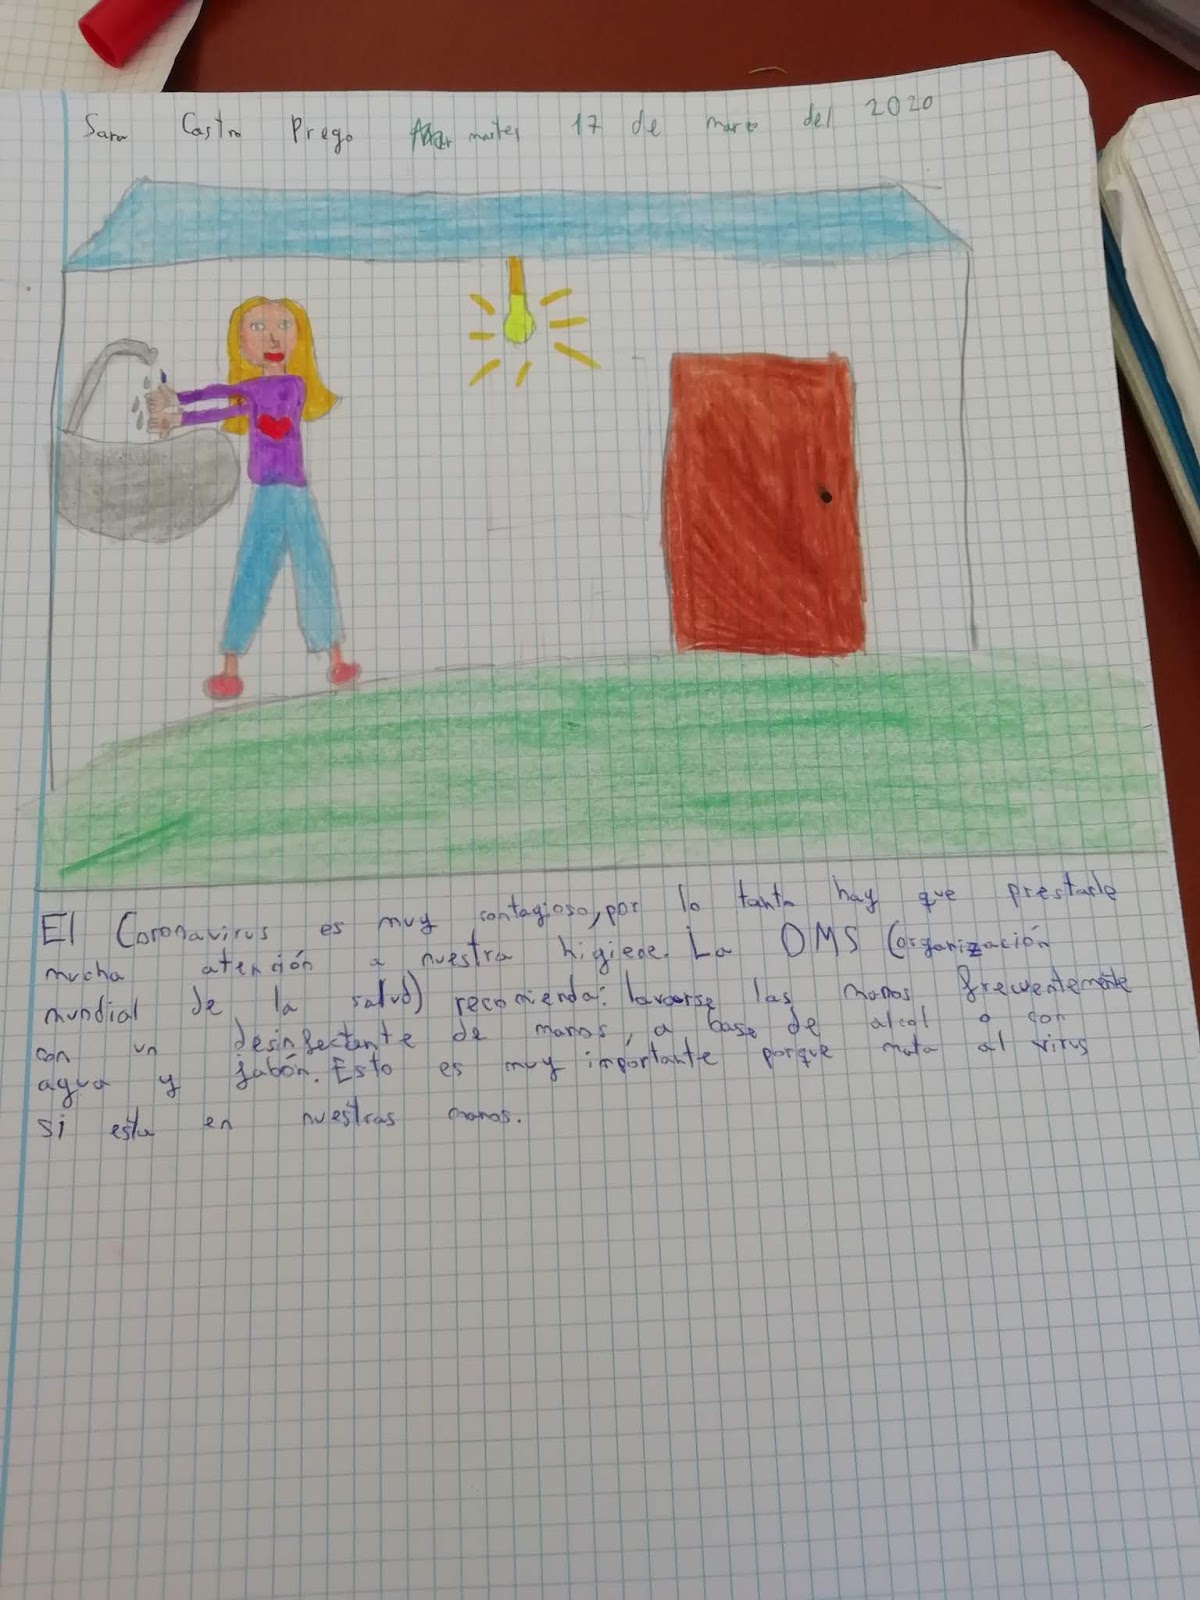 Sara Castro Prego martes 17 de marzo del 2020
El Coronavirus es muy contagioso, por lo tanto hay que prestarle
mucha atención a nuestra higiene. La OMS (organización
mundial de la salud) recomienda: lavarse las manos frecuentemente
con un desinfectante de manos, a base de alcol o con
agua y jabón. Esto es muy importante porque mata al virus
si esta en nuestras manos.